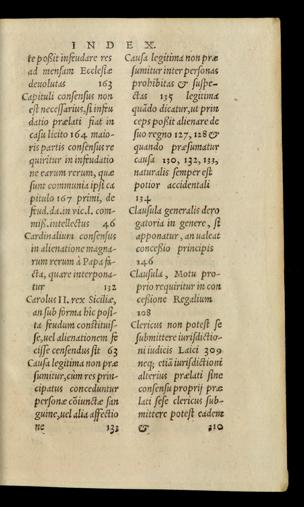 INDEX.
te poßit infeudare res
ad mensam Ecclesiæ
deuolutas 163
Capituli consensus non
est necessarius, si infeu
datio prælati fiat in
casu licito 164. maio-
ris partis consensus re
quiritur in infeudatio
ne earum rerum, quæ
sunt communia ipsi ca
pitulo 167 primi, de
feud.da.in vic.l. com-
miß.intellectus 46
Cardinalium consensus
in alienatione magna-
rum rerum à Papa fa-
cta, quare interpona-
tur 132
Carolus II. rex Siciliæ,
an sub forma hic posi-
ta feudum constituis-
se, uel alienationem fe
cisse censendus sit 63
Causa legitima non præ
sumitur, cùm res prin-
cipatus conceduntur
personæ cōiunctæ san
guine, uel alia affectio
ne 132
Causa legitima non præ
sumitur inter personas
prohibitas & suspe-
ctas 135 legitima
quādo dicatur, ut prin
ceps poßit alienare de
suo regno 127, 128 &
quando præsumatur
causa 130, 132, 133,
naturalis semper est
potior accidentali
134
Clausula generalis dero
gatoria in genere, si
apponatur, an ualeat
conceßio principis
146
Clausula, Motu pro-
prio requiritur in con
ceßione Regalium
108
Clericus non potest se
submittere iurisdictio-
ni iudicis Laici 309
neq; etiā iurisdictioni
alterius prælati sine
consensu proprij præ
lati sese clericus sub-
mittere potest eadem
& 310